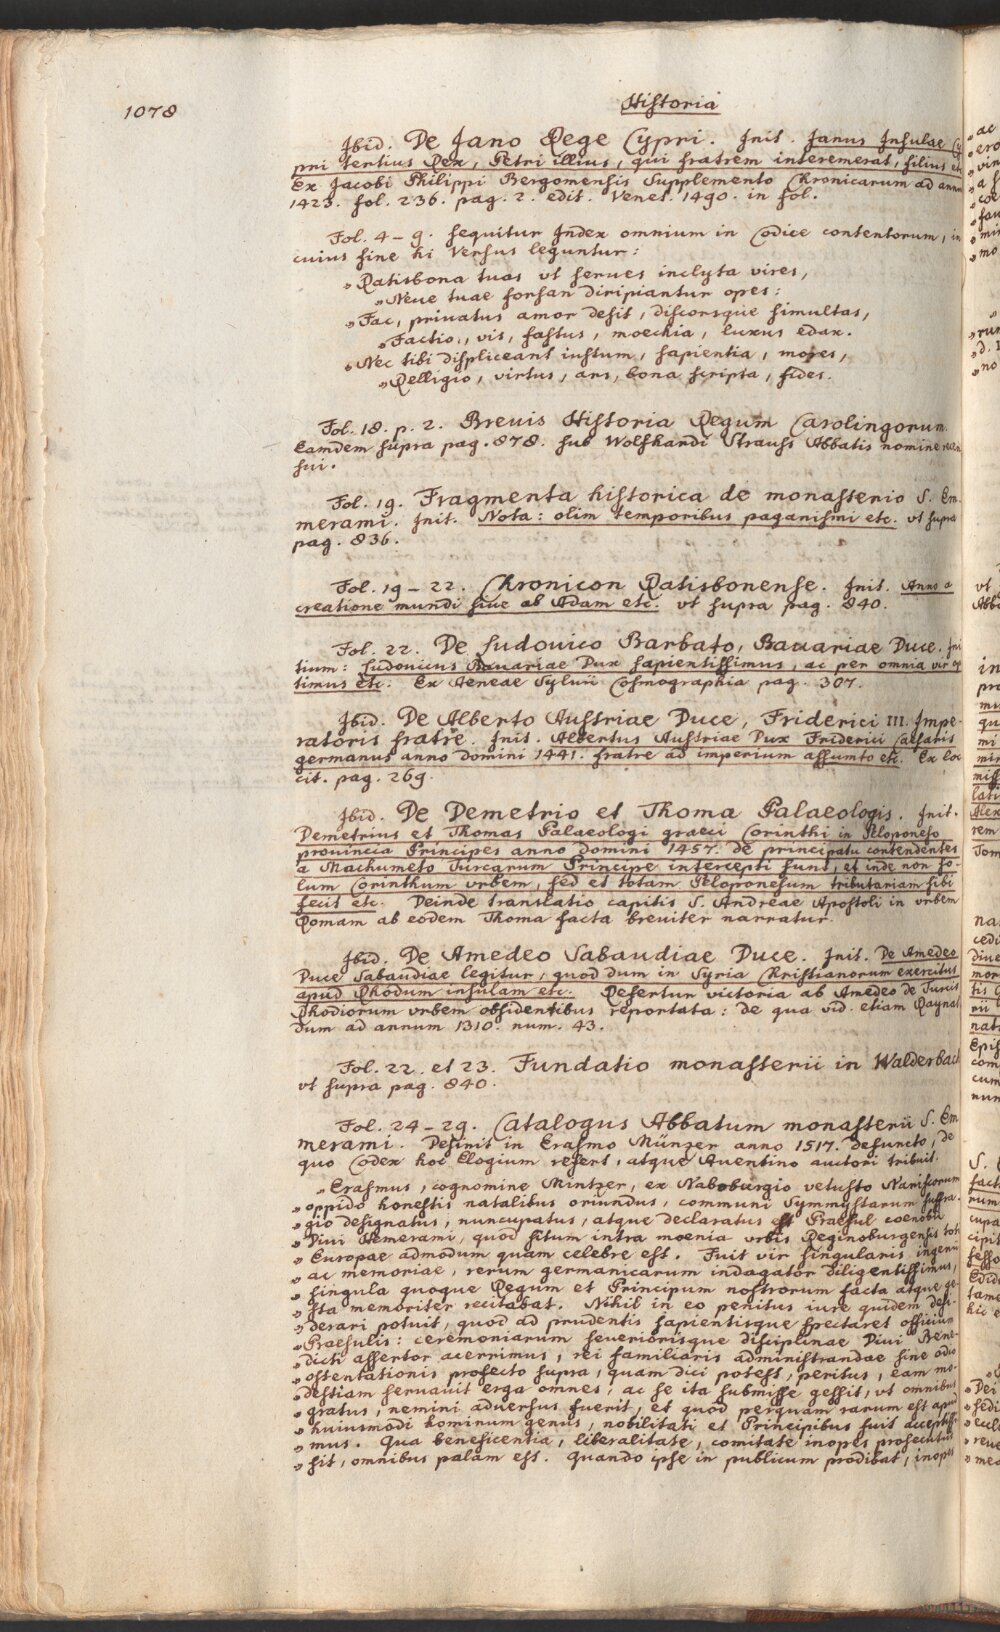 1078
Historia
Ibid. De Jano Rege Cypri. Init. Janus Insulae Cy
pri tertius Rex, Petri illius, qui fratrem interemerat, filius etc
Ex Jacobi Philippi Bergomensis Supplemento Chronicarum ad annu
1423. fol. 236. pag. 2. edit. Venet. 1490. in fol.
Fol. 4-9. sequitur Index omnium in Codice contentorum, in
cuius fine hi Versus leguntur:
„Ratisbona tuas vt serues inclyta vires,
„Neue tuae forsan diripiantur opes:
„Fac, priuatus amor desit, discorsque simultas,
„Factio, vis, fastus, moechia, luxus edax.
„Nec tibi displiceant iustum, sapientia, mores,
„Relligio, virtus, ars, bona scripta, fides.
Fol. 18. p. 2. Breuis Historia Regum Carolingorum.
Eamdem supra pag. 878. sub Wolfhandi Strauss Abbatis nomine recen
sui.
Fol. 19. Fragmenta historica de monasterio S. Em
merami. Init. Nota: olim temporibus paganismi etc. vt supra
pag. 836.
Fol. 19-22. Chronicon Ratisbonense. Init. Anno a
creatione mundi siue ab Adam etc. vt supra pag. 840.
Fol. 22. De Ludouico Barbato, Bauariae Duce. Ini
tium: Ludouicus Bauariae Dux sapientissimus, ac per omnia vir op
timus etc. Ex Aeneae Syluii Cosmographia pag. 307.
Ibid. De Alberto Austriae Duce, Friderici III. Impe-
ratoris fratre. Init. Albertus Austriae Dux Friderici Caesaris
germanus anno domini 1441. fratre ad imperium assumto etc. Ex loc
cit. pag. 269.
Ibid. De Demetrio et Thoma Palaeologis. Init.
Demetrius et Thomas Palaeologi graeci Corinthi in Peloponeso
prouincia Principes anno domini 1457. de principatu contendentes
a Machumeto Turcarum Principe intercepti sunt, et inde non so-
lum Corinthum vrbem, sed et totam Peloponesum tributariam sibi
fecit etc. Deinde translatio capitis S. Andreae Apostoli in vrbem
Romam ab eodem Thoma facta breuiter narratur.
Ibid. De Amedeo Sabaudiae Duce. Init. De Amedeo
Duce Sabaudiae legitur, quod dum in Syria Christianorum exercitus
apud Rhodum insulam etc. Refertur victoria ab Amedeo de Turcis
Rhodiorum vrbem obsidentibus reportata: de qua vid. etiam Raynal
dum ad annum 1310. num. 43.
Fol. 22. et 23. Fundatio monasterii in Walderbach
vt supra pag. 840.
Fol. 24-29. Catalogus Abbatum monasterii S. Em
merami. Desinit in Erasmo Münzer anno 1517. defuncto, de
quo Codex hoc Elogium refert, atque Auentino auctori tribuit.
„Erasmus, cognomine Mintzer, ex Naboburgio vetusto Nariscorum
„oppido honestis natalibus oriundus, communi Symmystarum suffra-
„gio designatus, nuncupatus, atque declaratus est Praesul coenobii
„Diui Hemerami, quod situm intra moenia vrbis Reginoburgensis toti
„Europae admodum quam celebre est. Fuit vir singularis ingenii
„ac memoriae, rerum germanicarum indagator diligentissimus,
„singula quoque Regum et Principum nostrorum facta atque ge-
„sta memoriter recitabat. Nihil in eo penitus iure quidem desi-
„derari potuit, quod ad prudentis sapientisque spectaret officium
„Praesulis: ceremoniarum seueriorisque disciplinae Diui Bene-
„dicti assertor acerrimus, rei familiaris administrandae sine odio
„ostentationis profecto supra, quam dici potest, peritus, eam mo-
„destiam seruauit erga omnes, ac se ita submisse gessit, vt omnibus
„gratus, nemini aduersus fuerit, et quod perquam rarum est apud
„huiusmodi hominum genus, nobilitati et Principibus fuit acceptissi
„mus. Qua beneficentia, liberalitate, comitate inopes prosecutus
„sit, omnibus palam est. Quando ipse in publicum prodibat, inopes